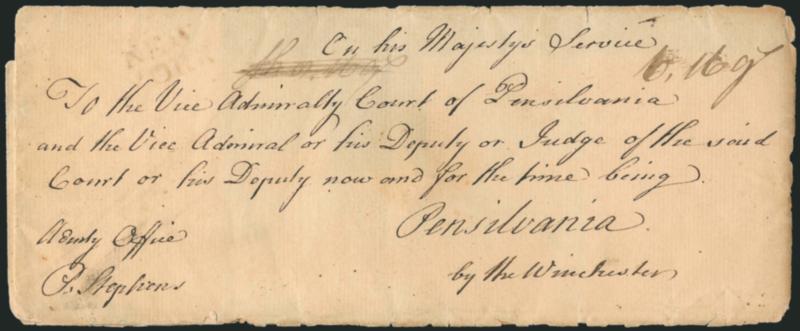 On his Majestys Service
6, 16 9
To the Vice Admiralty Court of Pensilvania
and the Vice Admiral or his Deputy or Judge of the said
Court or his Deputy now and for the time being.
Pensilvania.
Admty Office
P. Stephens
by the Winchester